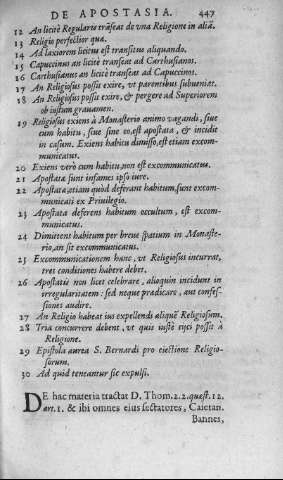 DE APOSTASIA. 447
12 An licitè Regularis trãseat de vna Religione in aliã.
13 Religio perfectior quæ.
14 Ad laxiorem licitus est transitus aliquando.
15 Capuccinus an licitè transeat ad Carthusianos.
16 Carthusianus an licitè transeat ad Capuccinos.
17 An Religiosus possit exire, vt parentibus subueniat.
18 An Religiosus possit exire, & pergere ad Superiorem
ob iustum grauamen.
19 Religiosus exiens à Monasterio animo vagandi, siue
cum habitu, siue sine eo, est apostata, & incidit
in casum. Exiens habitu dimisso, est etiam excom-
municatus.
20 Exiens verò cum habitu, non est excommunicatus.
21 Apostatæ sunt infames ipso iure.
22 Apostatæ, etiam quòd deferant habitum, sunt excom-
municati ex Priuilegio.
23 Apostata deferens habitum occultum, est excom-
municatus.
24 Dimittens habitum per breue spatium in Monaste-
rio, an sit excommunicatus.
25 Excommunicationem hanc, vt Religiosus incurrat,
tres conditiones habere debet.
26 Apostatis non licet celebrare, alioquin incidunt in
irregularitatem: sed neque prædicare, aut confes-
siones audire.
27 An Religio habeat ius expellendi aliquẽ Religiosum.
28 Tria concurrere debent, vt quis iustè eijci possit à
Religione.
29 Epistola aurea S. Bernardi pro eiectione Religio-
sorum.
30 Ad quid teneantur sic expulsi.
DE hac materia tractat D. Thom. 2.2. quæst. 12.
art. 1. & ibi omnes eius sectatores, Caietan.
Bannes,